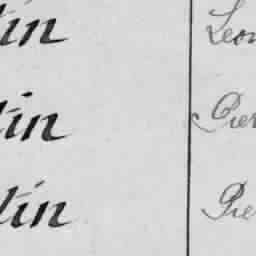 tin Leon
tin Pier
tin Pie